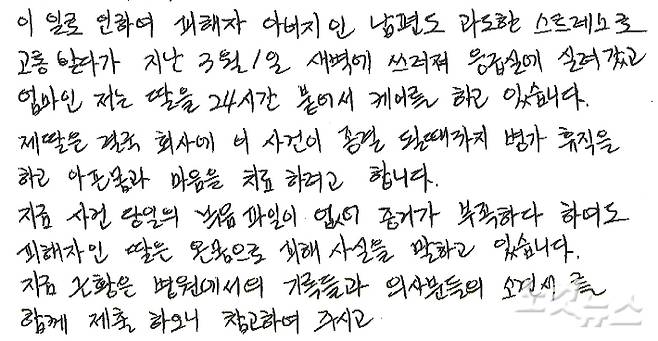 이 일로 인하여 피해자 아버지인 남편도 과도한 스트레스로
고통 받다가 지난 3월 1일 새벽에 쓰러져 응급실에 실려갔고
엄마인 저는 딸을 24시간 붙어서 케어를 하고 있습니다.
제딸은 결국 회사에 이 사건이 종결 될때까지 병가 휴직을
하고 아픈몸과 마음을 치료 하려고 합니다.
지금 사건 당일의 녹음파일이 없어 증거가 부족하다 하여도
피해자인 딸은 온몸으로 피해 사실을 말하고 있습니다.
지금 상황은 병원에서의 기록들과 의사분들의 소견서 를
함께 제출 하오니 참고하여 주시고
노컷뉴스